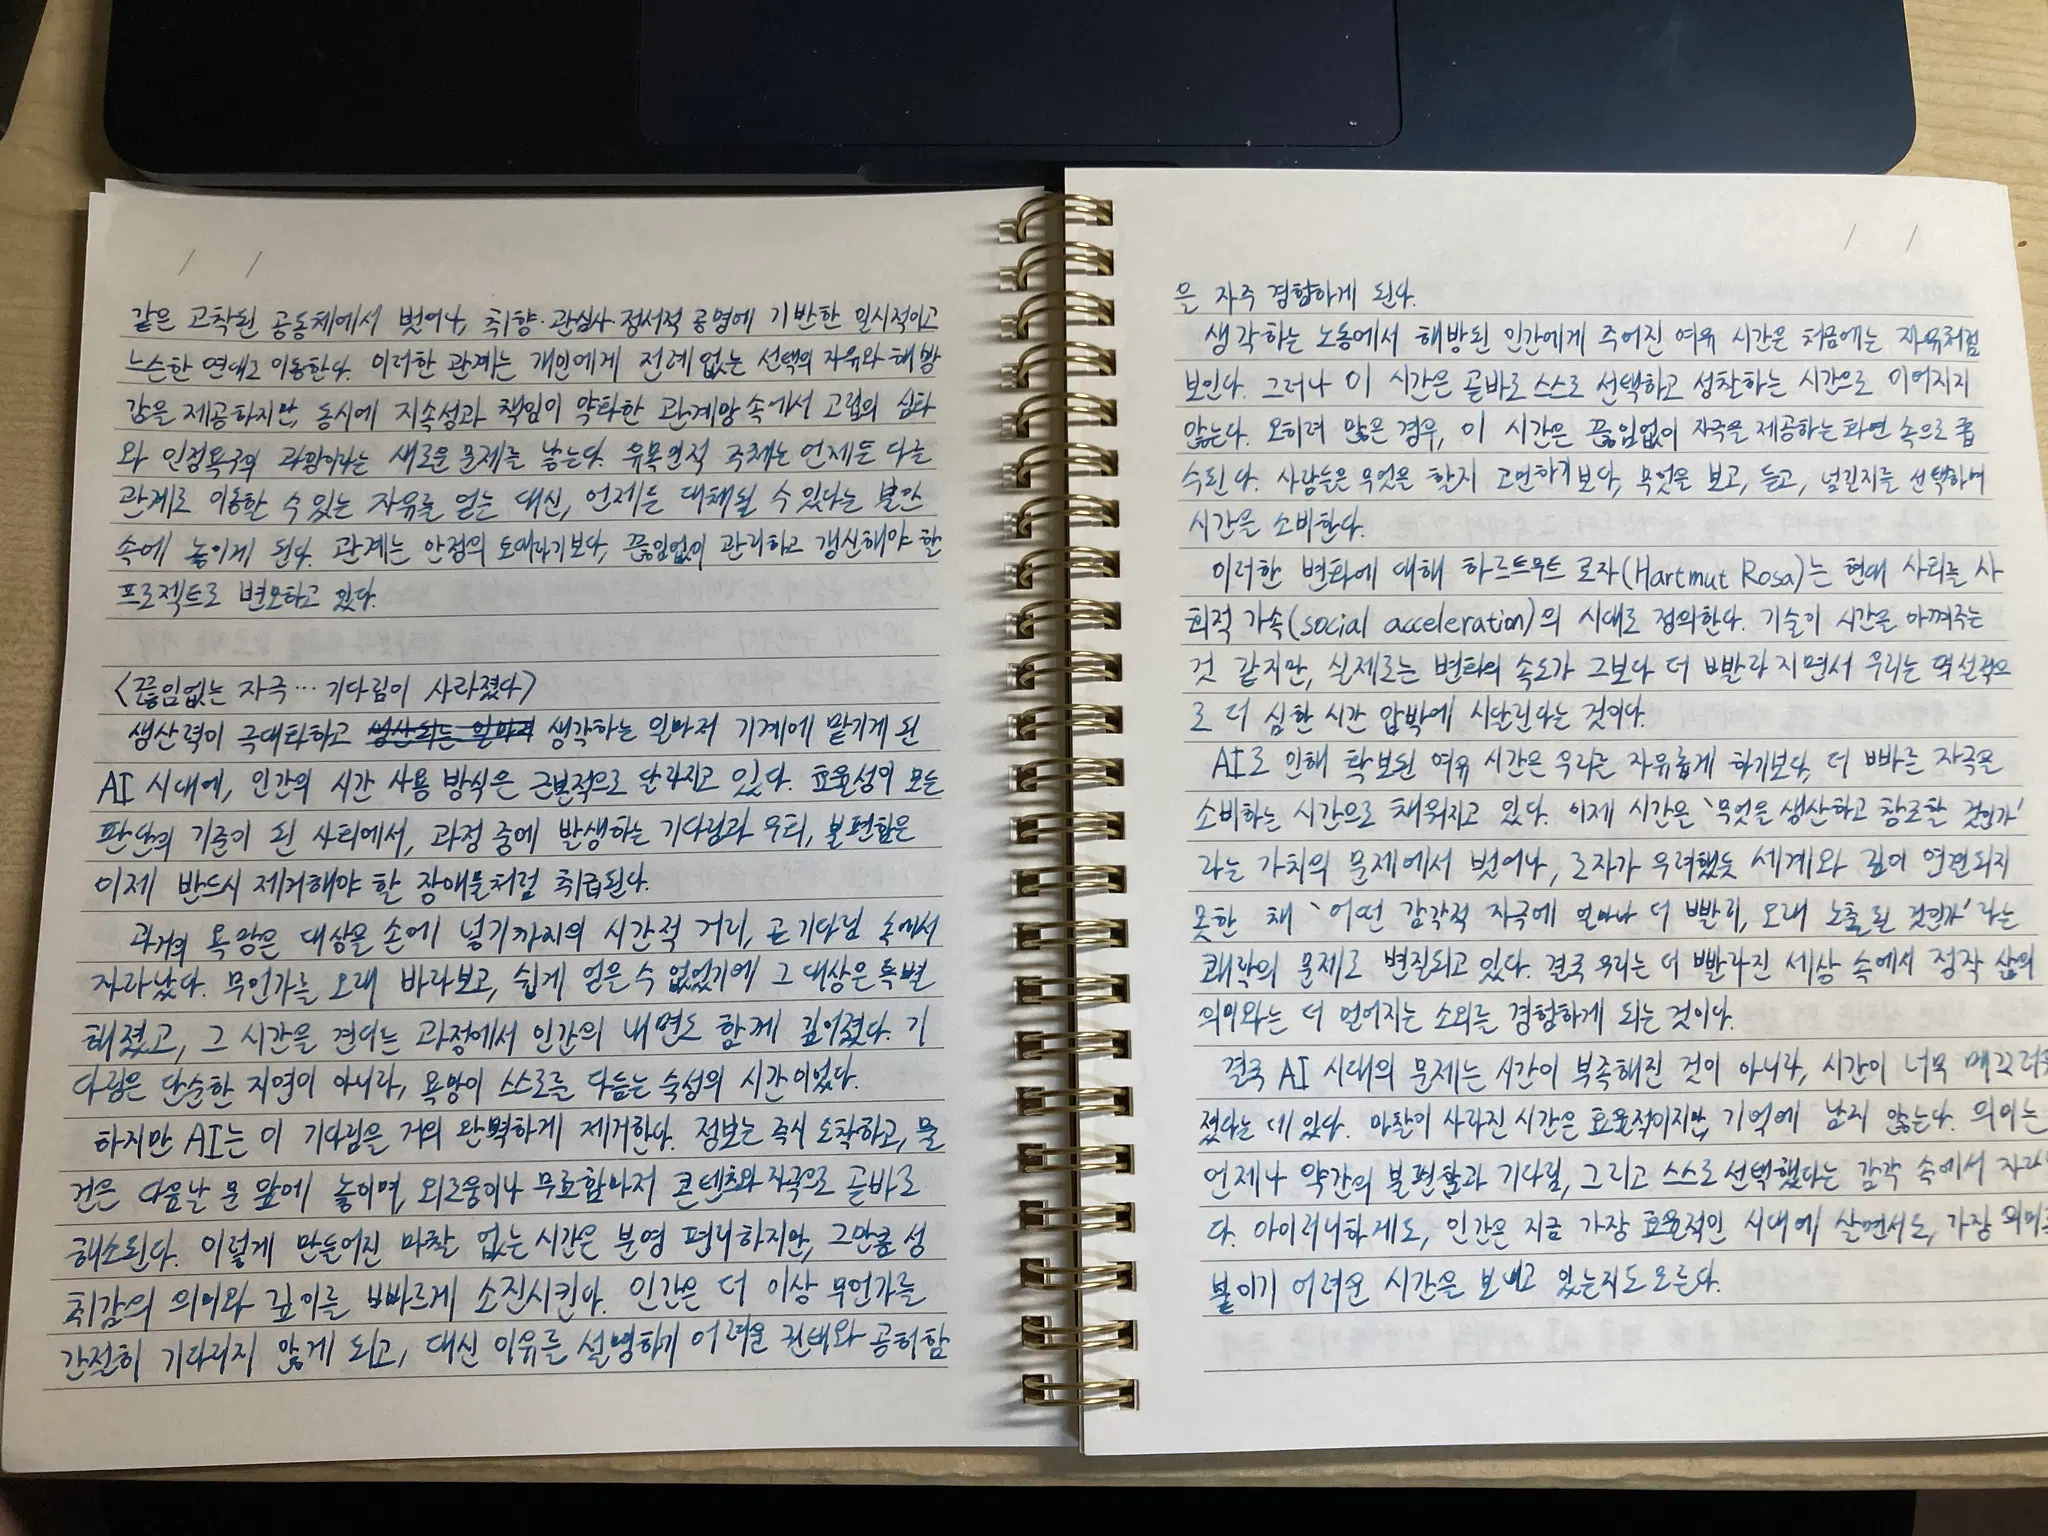 같은 고착된 공동체에서 벗어나, 취향·관심사·정서적 공명에 기반한 일시적이고
느슨한 연대로 이동한다. 이러한 관계는 개인에게 전례 없는 선택의 자유와 해방
감을 제공하지만, 동시에 지속성과 책임이 약화한 관계망 속에서 고립의 심화
와 인정욕구의 과잉이라는 새로운 문제를 낳는다. 유목민적 주체는 언제든 다른
관계로 이동할 수 있는 자유를 얻는 대신, 언제든 대체될 수 있다는 불안
속에 놓이게 된다. 관계는 안정의 토대라기보다, 끊임없이 관리하고 갱신해야 할
프로젝트로 변모하고 있다.
<끊임없는 자극… 기다림이 사라졌다>
생산력이 극대화하고 생각하는 일마저 기계에 맡기게 된
AI 시대에, 인간의 시간 사용 방식은 근본적으로 달라지고 있다. 효율성이 모든
판단의 기준이 된 사회에서, 과정 중에 발생하는 기다림과 우회, 불편함은
이제 반드시 제거해야 할 장애물처럼 취급된다.
과거의 욕망은 대상을 손에 넣기까지의 시간적 거리, 곧 기다림 속에서
자라났다. 무언가를 오래 바라보고, 쉽게 얻을 수 없었기에 그 대상은 특별
해졌고, 그 시간을 견디는 과정에서 인간의 내면도 함께 깊어졌다. 기
다림은 단순한 지연이 아니라, 욕망이 스스로를 다듬는 숙성의 시간이었다.
하지만 AI는 이 기다림을 거의 완벽하게 제거한다. 정보는 즉시 도착하고, 물
건은 다음날 문 앞에 놓이며, 외로움이나 무료함마저 콘텐츠와 자극으로 곧바로
해소된다. 이렇게 만들어진 마찰 없는 시간은 분명 편리하지만, 그만큼 성
취감의 의미와 깊이를 빠르게 소진시킨다. 인간은 더 이상 무언가를
간절히 기다리지 않게 되고, 대신 이유를 설명하기 어려운 권태와 공허함
을 자주 경험하게 된다.
생각하는 노동에서 해방된 인간에게 주어진 여유 시간은 처음에는 자유처럼
보인다. 그러나 이 시간은 곧바로 스스로 선택하고 성찰하는 시간으로 이어지지
않는다. 오히려 많은 경우, 이 시간은 끊임없이 자극을 제공하는 화면 속으로 흡
수된다. 사람들은 무엇을 할지 고민하기보다, 무엇을 보고, 듣고, 넘길지를 선택하며
시간을 소비한다.
이러한 변화에 대해 하르트무트 로자(Hartmut Rosa)는 현대 사회를 사
회적 가속(social acceleration)의 시대로 정의한다. 기술이 시간을 아껴주는
것 같지만, 실제로는 변화의 속도가 그보다 더 빨라지면서 우리는 역설적으
로 더 심한 시간 압박에 시달린다는 것이다.
AI로 인해 확보된 여유 시간은 우리를 자유롭게 하기보다, 더 빠른 자극을
소비하는 시간으로 채워지고 있다. 이제 시간은 '무엇을 생산하고 창조할 것인가'
라는 가치의 문제에서 벗어나, 로자가 우려했듯 세계와 깊이 연결되지
못한 채 '어떤 감각적 자극에 얼마나 더 빨리, 오래 노출될 것인가'라는
쾌락의 문제로 변질되고 있다. 결국 우리는 더 빨라진 세상 속에서 정작 삶의
의미와는 더 멀어지는 소외를 경험하게 되는 것이다.
결국 AI 시대의 문제는 시간이 부족해진 것이 아니라, 시간이 너무 매끄러워
졌다는 데 있다. 마찰이 사라진 시간은 효율적이지만, 기억에 남지 않는다. 의미는
언제나 약간의 불편함과 기다림, 그리고 스스로 선택했다는 감각 속에서
다. 아이러니하게도, 인간은 지금 가장 효율적인 시대에 살면서도, 가장 의미를
붙이기 어려운 시간을 보내고 있는지도 모른다.